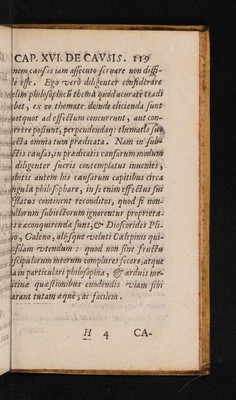 CAP. XVI. DE CAVSIS. 119
nem causis iam assecuto seruare non diffi-
le esse. Ego verò diligenter considerare
elim philosophicū thema quod accuratè tradi
bet, ex eo themate deinde elicienda sunt
uotquot ad effectum concurrunt, aut con-
rrere possunt, perpendendaq; thematis sub
ecta omnia tum prædicata. Nam in sub-
ctis causas, in prædicatis causarum modum
diligenter fueris contemplatus inuenies,
abitis autem his causarum capitibus circa
ngula philosophare, in se enim effectus sui
stlatus continent reconditos, quòd si non-
ullorum subiectorum ignorentur proprieta-
is ea conquirenda sunt, & Dioscorides Pli-
io, Galeno, alijsque veluti Calepinis qui-
usdam vtendum: quod non sine fructu
iscipulorum meorum complures fecere, atque
ta in particulari philosophia, & arduis me-
icinæ quæstionibus enodendis viam sibi
ararunt tutam æquè, ac facilem.
H 4 CA-